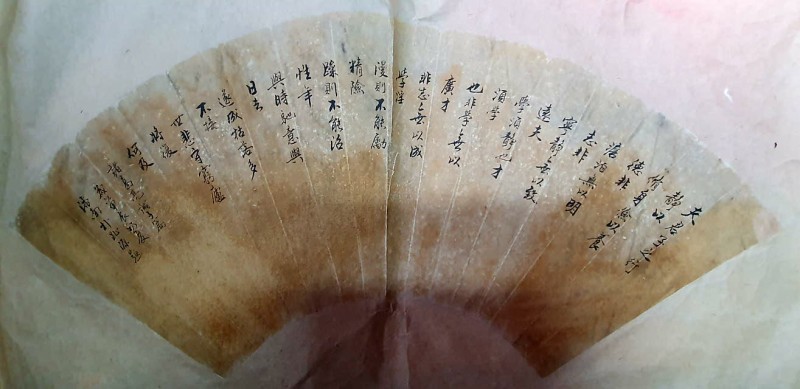 夫君子之行
靜以
修身儉以養
德非
澹泊無以明
志非
寧靜無以致
遠夫
學須靜也才
須學
也非學無以
廣才
非志無以成
學淫
漫則不能勵
精險
躁則不能治
性年
與時馳意與
日去
遂成枯落多
不接
世悲守窮廬
將復
何及